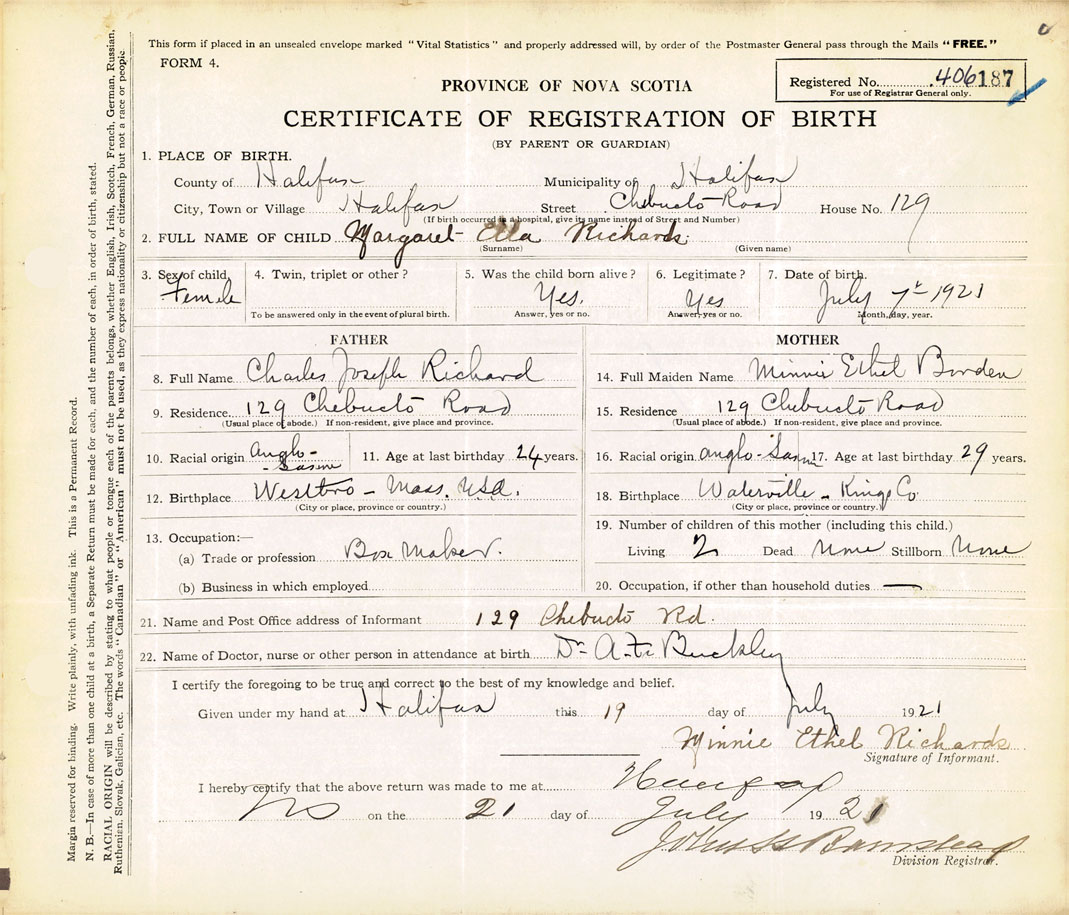 This form if placed in an unsealed envelope marked "Vital Statistics" and properly addressed will, by order of the Postmaster General pass through the Mails "FREE."
FORM 4.
Registered No. 406187
For use of Registrar General only.
PROVINCE OF NOVA SCOTIA
CERTIFICATE OF REGISTRATION OF BIRTH
(BY PARENT OR GUARDIAN)
1. PLACE OF BIRTH.
County of Halifax Municipality of Halifax
City, Town or Village Halifax Street Chebucto Road House No. 129
(If birth occurred in a hospital, give its name instead of Street and Number)
2. FULL NAME OF CHILD Margaret Ella Richards
(Surname) (Given name)
3. Sex of child. 4. Twin, triplet or other? 5. Was the child born alive? 6. Legitimate? 7. Date of birth.
Female Yes. Yes July 7th 1921
To be answered only in the event of plural birth. Answer, yes or no. Answer, yes or no. Month, day, year.
FATHER MOTHER
8. Full Name Charles Joseph Richard 14. Full Maiden Name Minnie Ethel Borden
9. Residence 129 Chebucto Road 15. Residence 129 Chebucto Road
(Usual place of abode.) If non-resident, give place and province. (Usual place of abode.) If non-resident, give place and province.
10. Racial origin Anglo-Saxon 11. Age at last birthday 24 years. 16. Racial origin Anglo-Saxon 17. Age at last birthday 29 years.
12. Birthplace Westboro - Mass. USA. 18. Birthplace Waterville - Kings Co.
(City or place, province or country.) (City or place, province or country.)
13. Occupation:— 19. Number of children of this mother (including this child.)
(a) Trade or profession Box Maker. Living 2 Dead None Stillborn None
(b) Business in which employed 20. Occupation, if other than household duties —
21. Name and Post Office address of Informant 129 Chebucto Rd.
22. Name of Doctor, nurse or other person in attendance at birth Dr. Buckley
I certify the foregoing to be true and correct to the best of my knowledge and belief.
Given under my hand at Halifax this 19 day of July 1921
Minnie Ethel Richards
Signature of Informant.
I hereby certify that the above return was made to me at Halifax
NS on the 21 day of July 1921
Division Registrar.
Margin reserved for binding. Write plainly, with unfading ink. This is a Permanent Record.
N. B.—In case of more than one child at a birth, a Separate Return must be made for each, and the number of each, in order of birth, stated.
RACIAL ORIGIN will be described by stating to what people or tongue each of the parents belongs, whether English, Irish, Scotch, French, German, Russian,
Ruthenian, Slovak, Galician, etc. The words "Canadian" or "American" must not be used, as they express nationality or citizenship but not a race or people